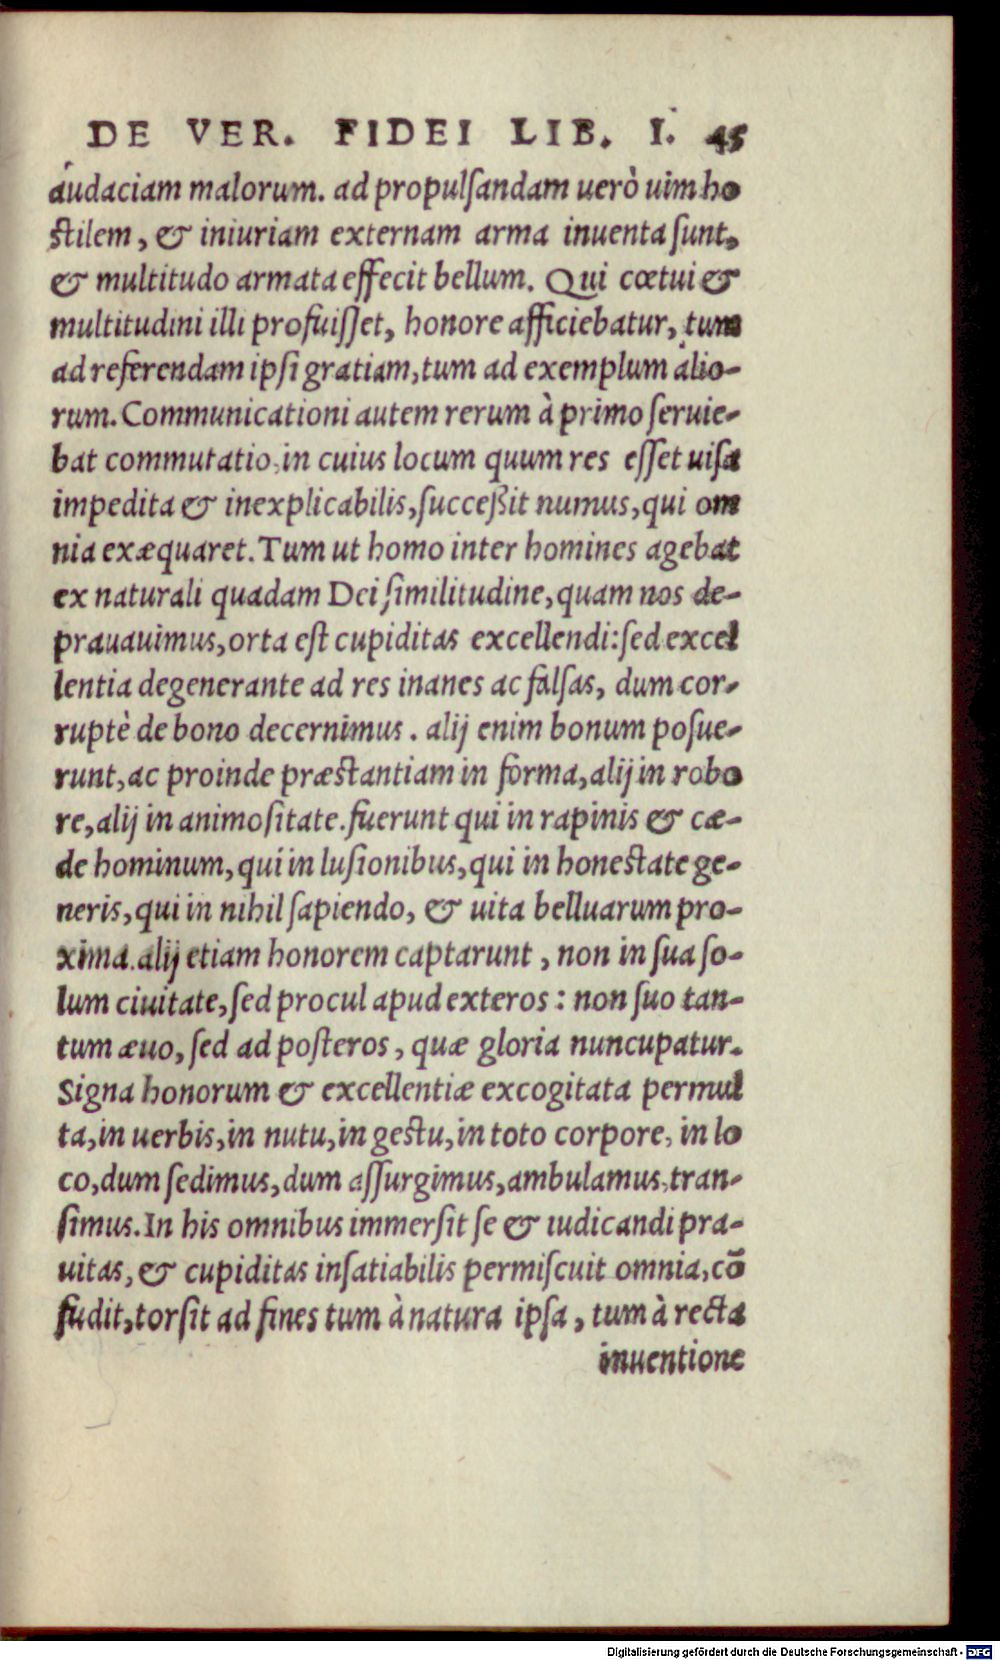 DE VER. FIDEI LIB. I. 45
audaciam malorum. ad propulſandam uerò uim ho
ſtilem, & iniuriam externam arma inuenta ſunt,
& multitudo armata effecit bellum. Qui cœtui &
multitudini illi profuiſſet, honore afficiebatur, tum
ad referendam ipſi gratiam, tum ad exemplum alio-
rum. Communicationi autem rerum à primo ſeruie-
bat commutatio, in cuius locum quum res eſſet uiſa
impedita & inexplicabilis, ſucceßit numus, qui om
nia exæquaret. Tum ut homo inter homines agebat
ex naturali quadam Dei ſimilitudine, quam nos de-
prauauimus, orta eſt cupiditas excellendi: ſed excel
lentia degenerante ad res inanes ac falſas, dum cor-
ruptè de bono decernimus. alij enim bonum poſue-
runt, ac proinde præſtantiam in forma, alij in robo
re, alij in animoſitate. fuerunt qui in rapinis & cæ-
de hominum, qui in luſionibus, qui in honeſtate ge-
neris, qui in nihil ſapiendo, & uita belluarum pro-
xima. alij etiam honorem captarunt, non in ſua ſo-
lum ciuitate, ſed procul apud exteros: non ſuo tan-
tum æuo, ſed ad poſteros, quæ gloria nuncupatur.
Signa honorum & excellentiæ excogitata permul
ta, in uerbis, in nutu, in geſtu, in toto corpore, in lo
co, dum ſedimus, dum aſſurgimus, ambulamus, tran-
ſimus. In his omnibus immerſit ſe & iudicandi pra-
uitas, & cupiditas inſatiabilis permiſcuit omnia, cõ
fudit, torſit ad fines tum à natura ipſa, tum à recta
inuentione
Digitalisierung gefördert durch die Deutsche Forschungsgemeinschaft - DFG